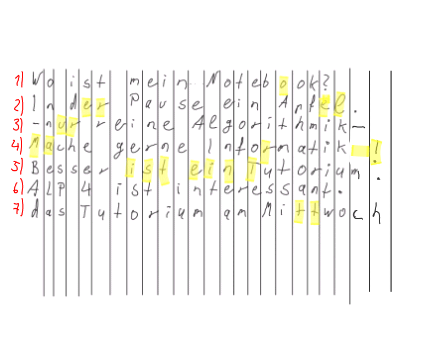 1) Wo ist mein Notebook?
2) In der Pause ein Apfel.
3) -nur reine Algorithmik-
4) Mache gerne Informatik-!
5) Besser ist ein Tutorium.
6) ALP4 ist interessant.
7) das Tutorium am Mittwoch